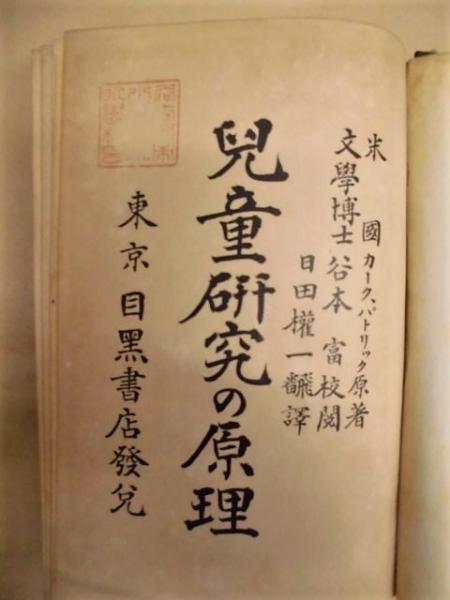 米國カーク、パトリック原著
文學博士谷本富校閲
日田權一飜譯
兒童硏究の原理
東京目黑書店發兌